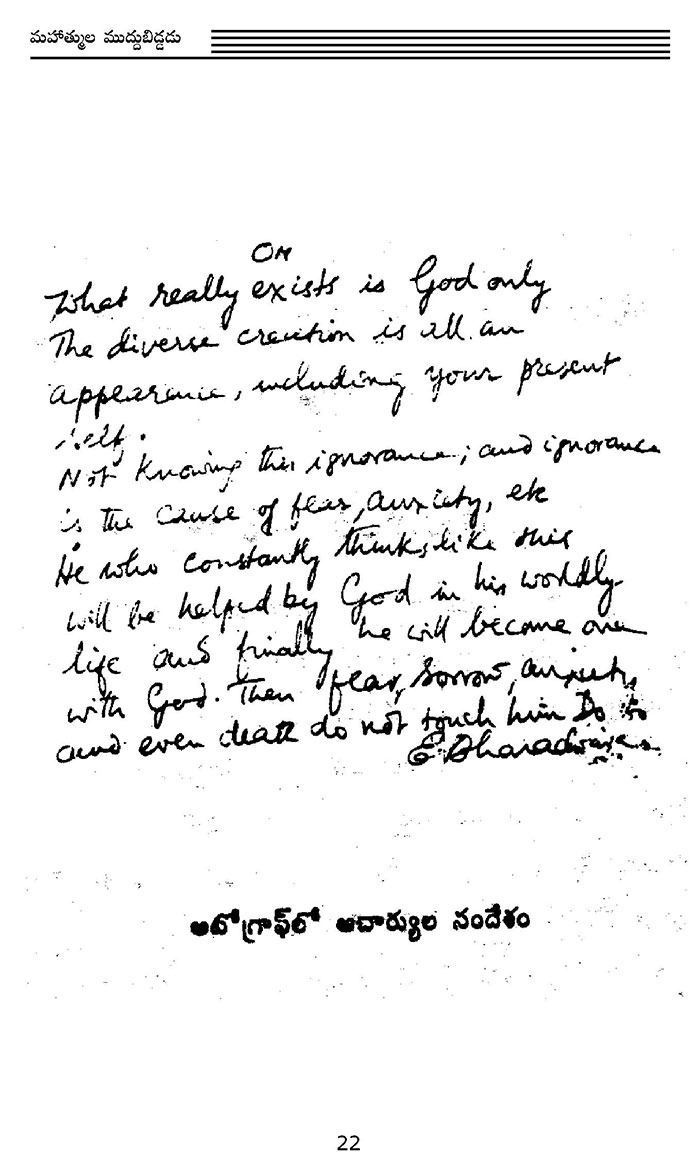 మహాత్ముల ముద్దుబిడ్డడు
OM
What really exists is God only
The diverse creation is all an
appearance, including your present
self.
Not knowing this ignorance; and ignorance
is the cause of fear, anxiety, etc
He who constantly thinks like this
will be helped by God in his worldly
life and finally he will become one
with God. Then fear, sorrow, anxiety,
and even death do not touch him Do so
E Bharadwaja
ఆటోగ్రాఫ్‌లో ఆచార్యుల సందేశం
22